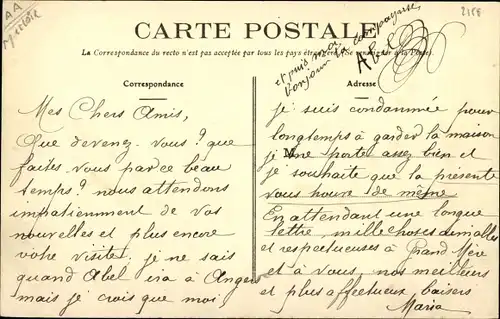 AA
2158
CARTE POSTALE
et puis mon
bonjour la compagnie
Abel
La Correspondance du recto n'est pas acceptée par tous les pays étrangers (Se renseigner à la Poste).
Correspondance
Mes Chers Amis,
Que devenez-vous? que
faites-vous par ce beau
temps? nous attendons
impatiemment de vos
nouvelles et plus encore
votre visite. je ne sais
quand Abel ira à Angers
mais je crois que moi,
Adresse
je suis condamnée pour
longtemps à garder la maison
M
je me porte assez bien et
je souhaite que la présente
vous trouve de même
En attendant une longue
lettre, mille choses aimables
et respectueuses à Grand Mère
et à vous, nos meilleurs
et plus affectueux baisers
Maria